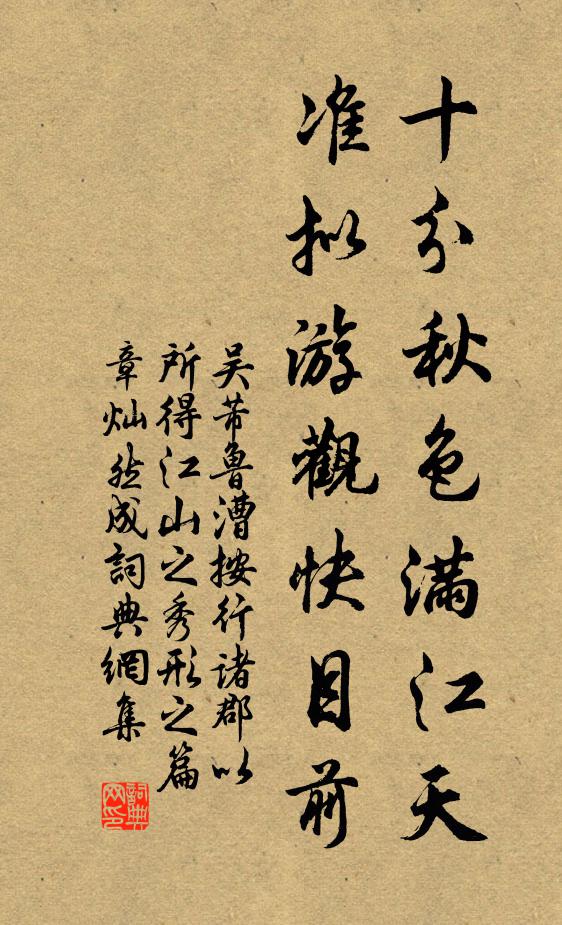 十分秋色滿江天
准拟游觀快目前
吴芾魯漕按行诸郡以
所得江山之秀形之篇
章灿然成詞典網集
詞典
网印